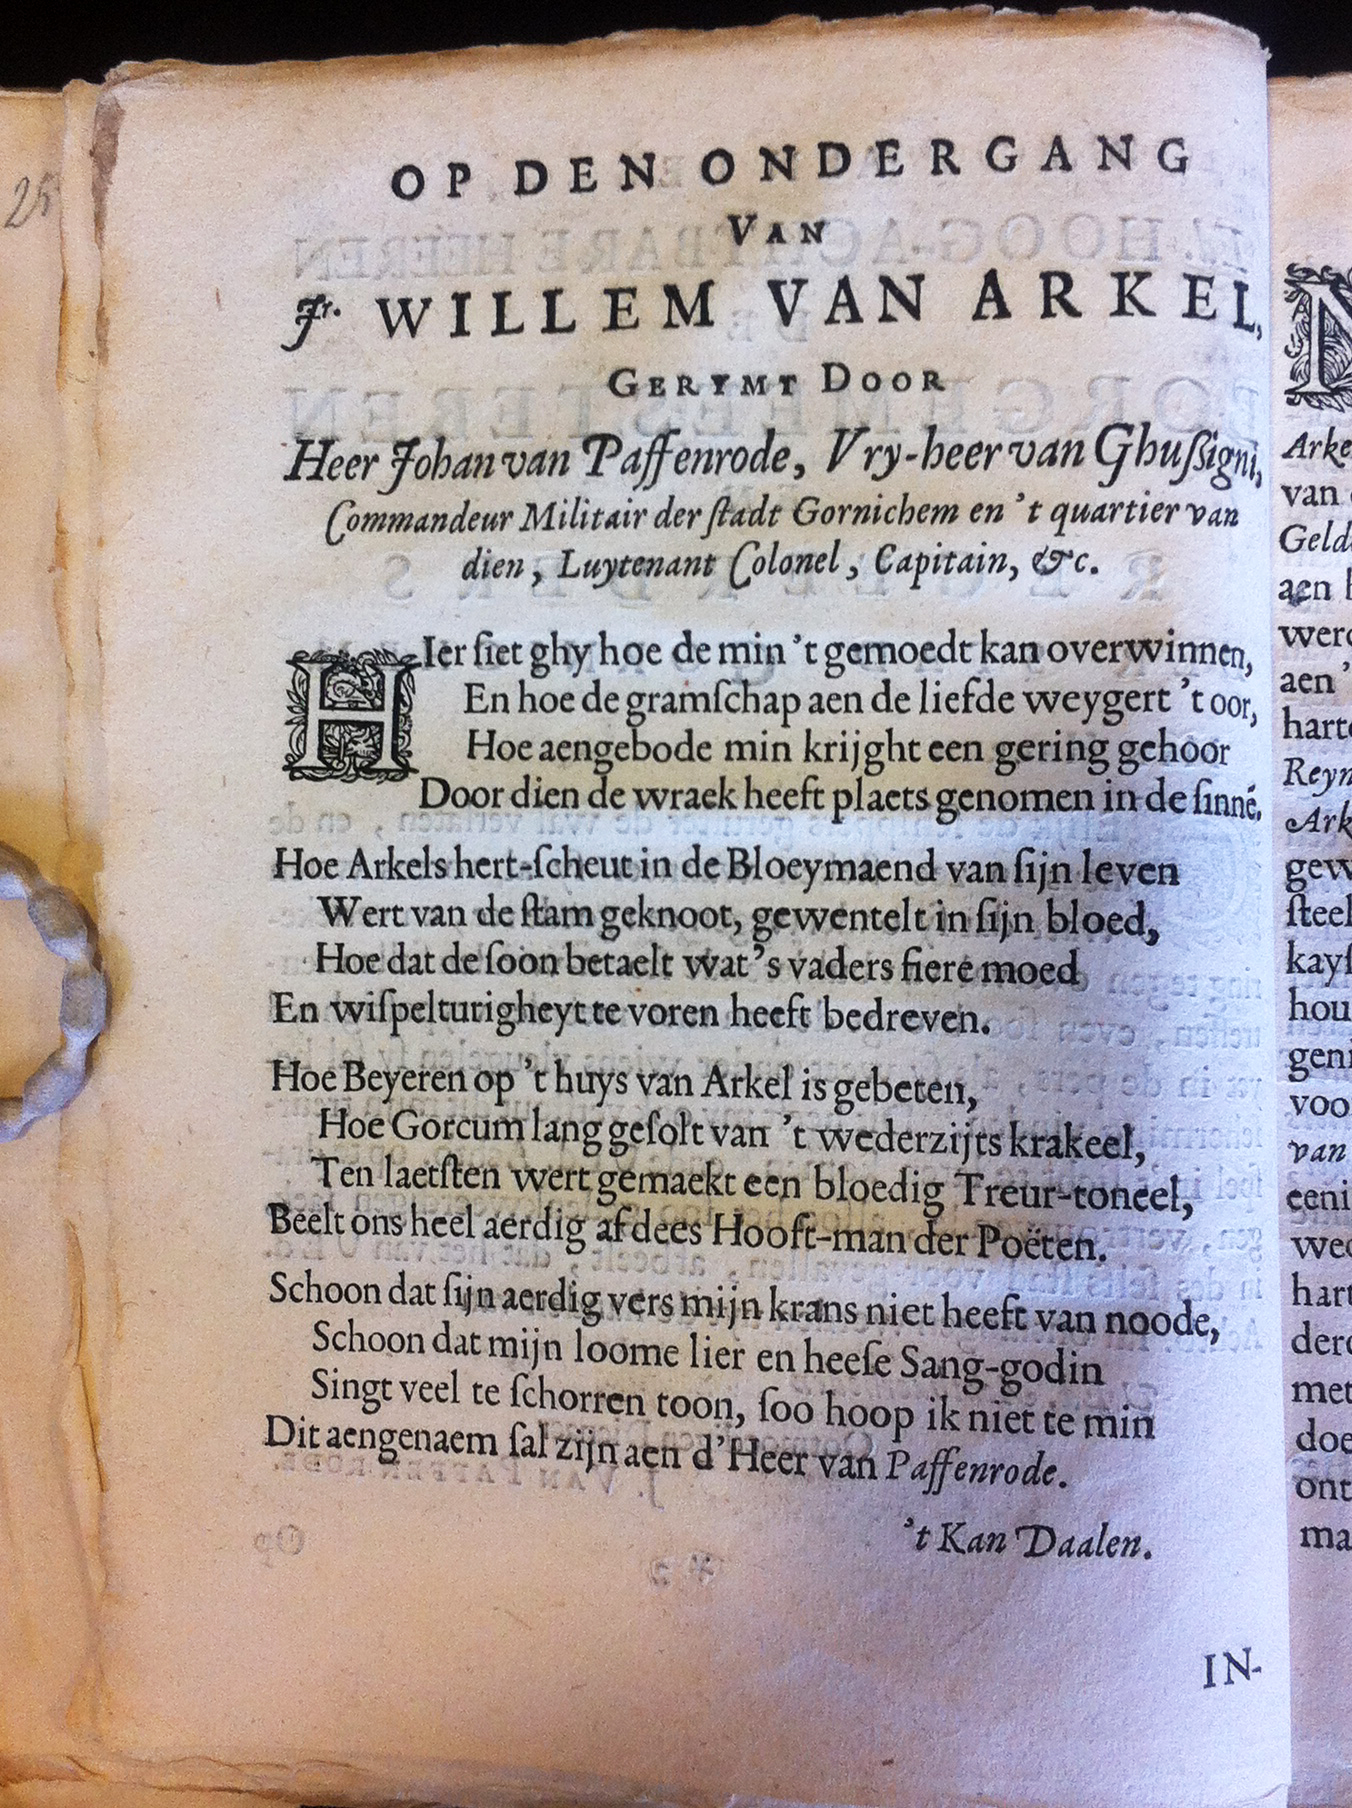 25
OP DEN ONDERGANG
VAN
Jr. WILLEM VAN ARKEL,
GERYMT DOOR
Heer Johan van Paffenrode, Vry-heer van Ghuſſigni,
Commandeur Militair der ſtadt Gornichem en 't quartier van
dien, Luytenant Colonel, Capitain, &c.
HIer ſiet ghy hoe de min 't gemoedt kan overwinnen,
En hoe de gramſchap aen de liefde weygert 't oor,
Hoe aengebode min krijght een gering gehoor
Door dien de wraek heeft plaets genomen in de ſinnē.
Hoe Arkels hert-ſcheut in de Bloeymaend van ſijn leven
Wert van de ſtam geknoot, gewentelt in ſijn bloed,
Hoe dat de ſoon betaelt wat 's vaders fiere moed
En wiſpelturigheyt te voren heeft bedreven.
Hoe Beyeren op 't huys van Arkel is gebeten,
Hoe Gorcum lang geſolt van 't wederzijts krakeel,
Ten laetſten wert gemaekt een bloedig Treur-toneel,
Beelt ons heel aerdig af dees Hooft-man der Poëten.
Schoon dat ſijn aerdig vers mijn krans niet heeft van noode,
Schoon dat mijn loome lier en heeſe Sang-godin
Singt veel te ſchorren toon, ſoo hoop ik niet te min
Dit aengenaem ſal zijn aen d'Heer van Paffenrode.
't Kan Daalen.
IN-